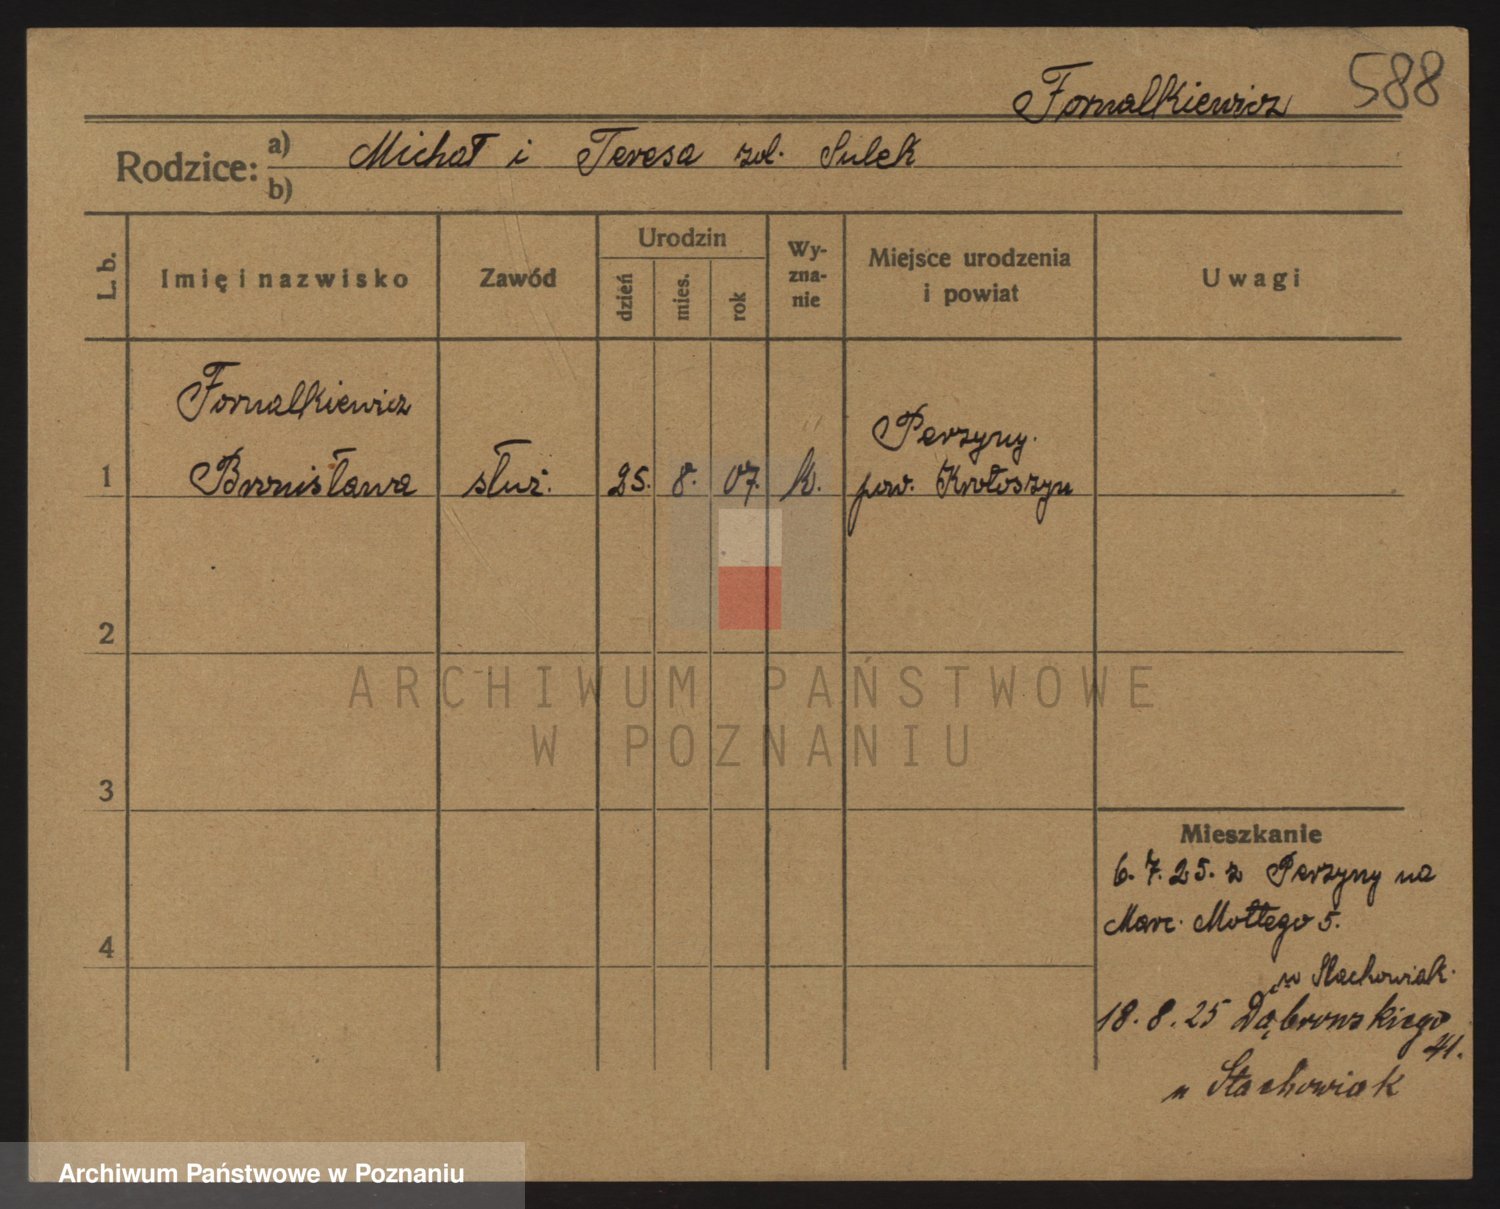 588
Fornalkiewicz
Rodzice: a) Michał i Teresa zd. Sulek
b)
L. b.
Imię i nazwisko
Zawód
Urodzin
dzień
mies.
rok
Wy-
zna-
nie
Miejsce urodzenia
i powiat
Uwagi
Fornalkiewicz
1 Bronisława służ. 25. 8. 07. k. Perzyny.
pow. Krotoszyn
2
3
4
Mieszkanie
6. 7. 25. z Perzyny na
Marc. Mottego 5.
u Stachowiak.
18. 8. 25 Dąbrowskiego
41.
u Stachowiak
ARCHIWUM PAŃSTWOWE
W POZNANIU
Archiwum Państwowe w Poznaniu